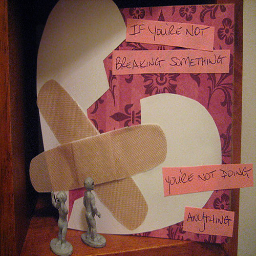 IF YOU'RE NOT
BREAKING SOMETHING
YOU'RE NOT DOING
ANYTHING